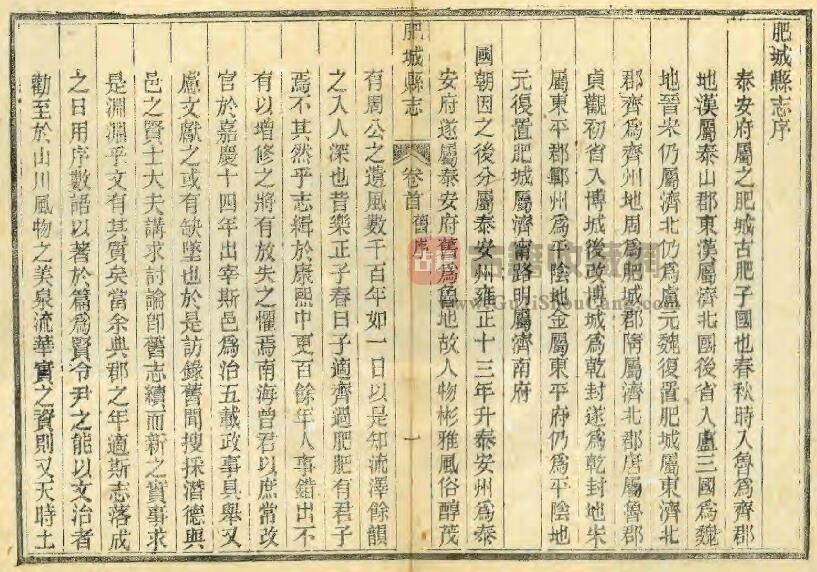 肥城縣志序
泰安府屬之肥城古肥子國也春秋時入魯爲齊郡
地漢屬泰山郡東漢屬濟北國後省入盧三國爲魏
地晉宋仍屬濟北仍爲盧元魏復置肥城屬東濟北
郡齊爲齊州地周爲肥城郡隋屬濟北郡唐屬魯郡
貞觀初省入博城後改博城爲乾封遂爲乾封地宋
屬東平郡鄆州爲平陰地金屬東平府仍爲平陰地
元復置肥城屬濟甯路明屬濟南府
國朝因之後分屬泰安州雍正十三年升泰安州爲泰
安府遂屬泰安府舊爲魯地故人物彬雅風俗醇茂
肥城縣志
卷首
舊序
一
有周公之遺風數千百年如一日以是知流澤餘韻
之入人深也昔樂正子春日子適齊過肥肥有君子
焉不其然乎志緝於康熙中更百餘年人事錯出不
有以增修之將有放失之懼焉南海曾君以庶常改
官於嘉慶十四年出宰斯邑爲治五載政事具舉又
慮文獻之或有缺墜也於是訪錄舊聞搜採潛德與
邑之賢士大夫講求討論卽舊志續而新之實事求
是淵淵乎文有其質矣當余典郡之年適斯志落成
之日用序數語以著於篇爲賢令尹之能以文治者
勸至於山川風物之美泉流華實之資則又天時土
古籍收藏网
www.GuJiShouCang.com